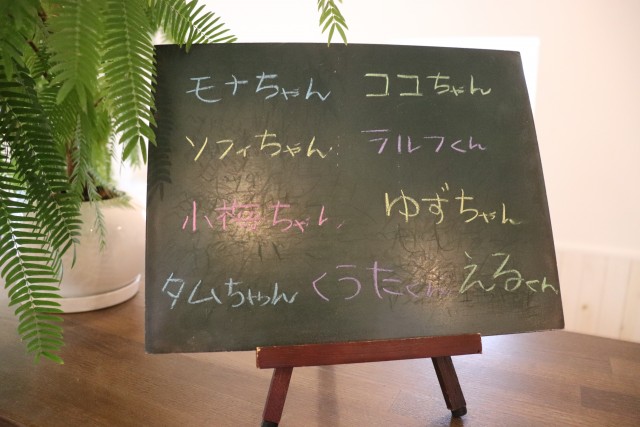 モナちゃん ココちゃん
ソフィちゃん ラルフくん
小梅ちゃん ゆずちゃん
タムちゃん くうたくん えるくん